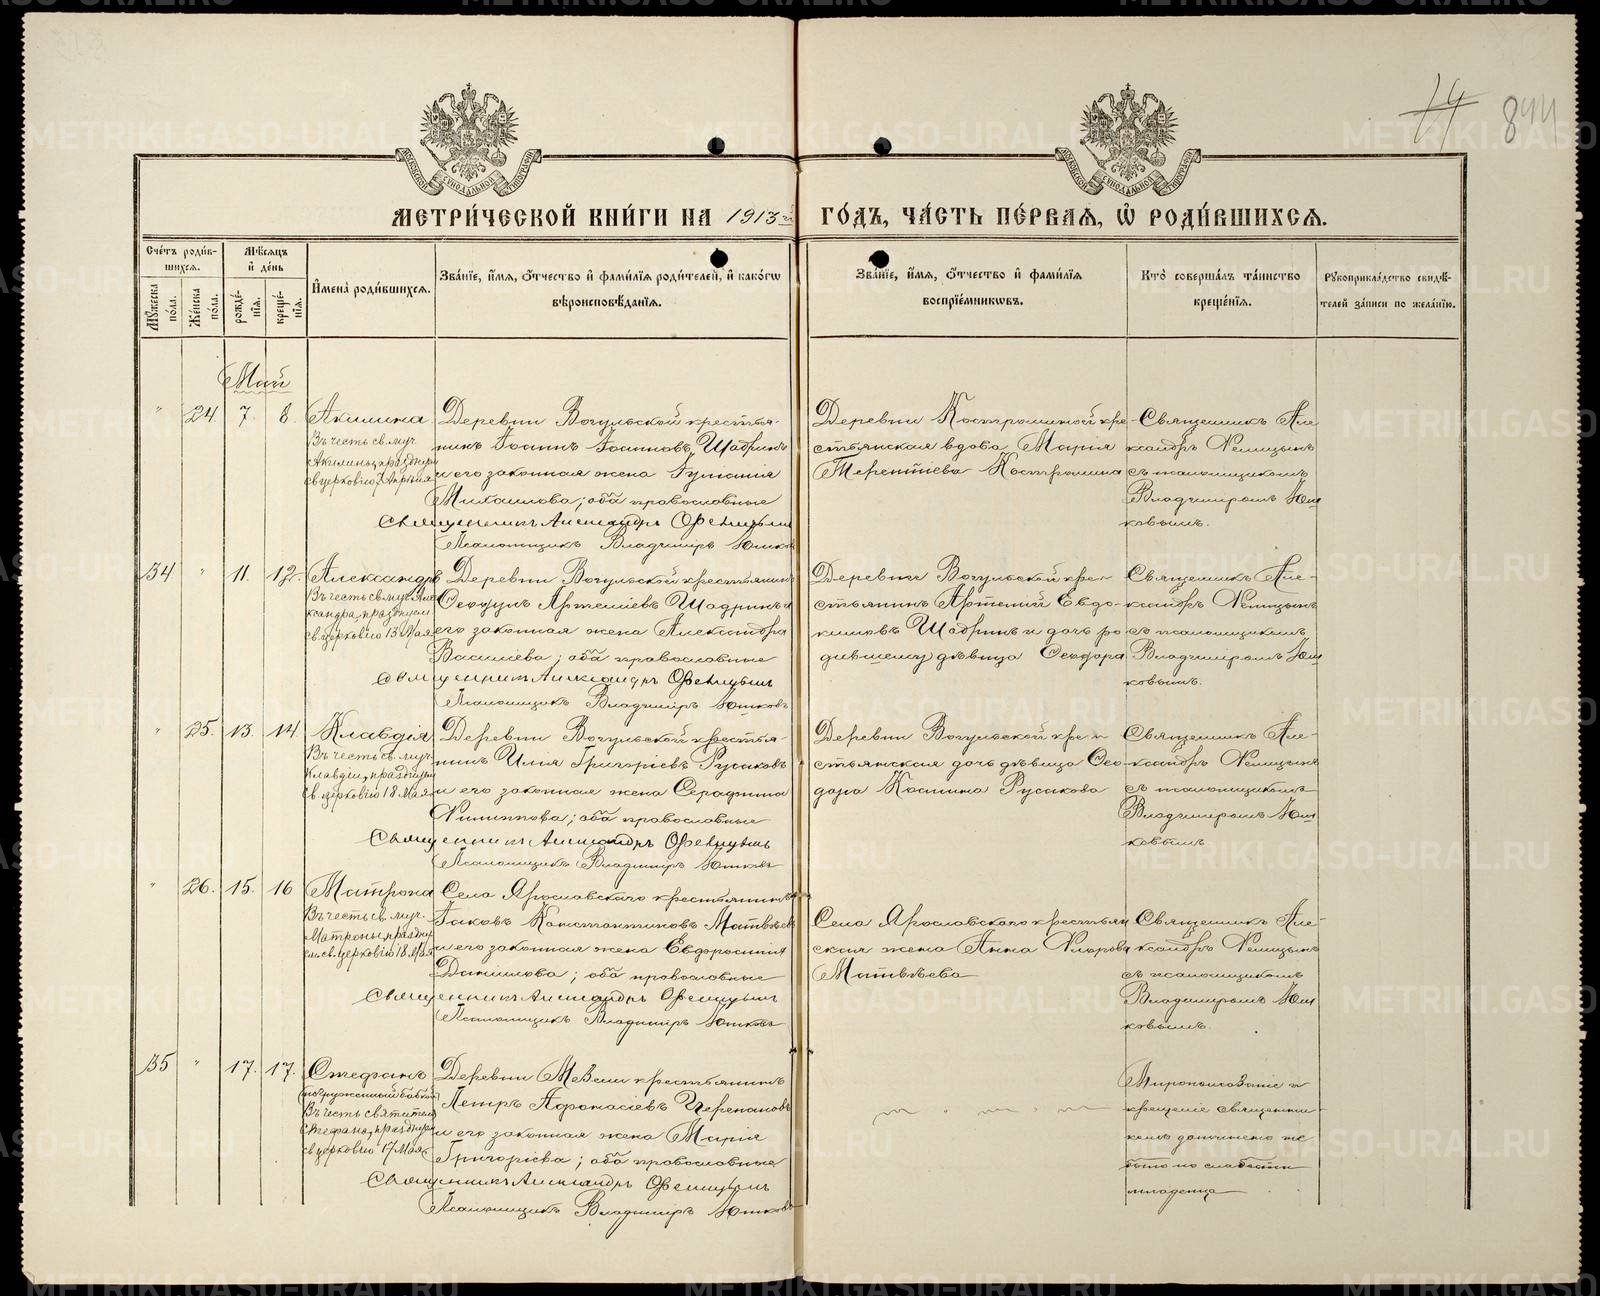 74 844
МОСКОВСКОЙ СѴНОДАЛЬНОЙ ТИПОГРАФІИ
МОСКОВСКОЙ СѴНОДАЛЬНОЙ ТИПОГРАФІИ
МЕТРИ́ЧЕСКОЙ КНИ́ГИ НА 1913й ГО́ДЪ, ЧА́СТЬ ПЕ́РВАЯ, Ѡ РОДИ́ВШИХСЯ.
Счетъ роди́вшихся.
Му́жеска по́ла.
Же́нска по́ла.
Мѣ́сяцъ и́ де́нь
рожде́нїя.
креще́нїя.
И҆мена̀ роди́вшихся.
Зва́нїе, и҆́мя, ѻ҆́тчество и҆ фами́лїя роди́телей, и҆ како́гѡ
вѣроисповѣ́данїя.
Зва́нїе, и҆́мя, ѻ҆́тчество и҆ фами́лїя
воспрїе́мникѡвъ.
Кто̀ соверша́лъ та́инство
креще́нїя.
Рꙋкоприкла́дство свидѣ́-
телей за́писи по жела́нїю.
Май
" 24 7. 8. Акилина
Въ честь св. муч.
Акилины, праздну
св церковію 7 Апрѣля
Деревни Вогульской крестья-
нинъ Іоаннъ Іоанновъ Шадринъ
и его законная жена
Михаилова; оба православные
Священникъ Александръ
Псаломщикъ Владиміръ Юшковъ
Деревни Костроминой кре-
стьянская вдова Марія
Терентіева Костромина
Священникъ Але
ксандръ
съ псаломщикомъ
Владиміромъ Юш
ковымъ.
34 " 11. 12. Александръ
Въ честь св. муч. Але
ксандра, празднуем
св. церковію 13 Мая
Деревни Вогульской крестьянинъ
Ѳеодулъ Артеміевъ Шадринъ и
его законная жена Александра
Василіева; оба православные
Священникъ Александръ
Псаломщикъ Владиміръ Юшковъ
Деревни Вогульской кре-
стьянинъ Артемій Евдо-
кимовъ Шадринъ и дочь ро
дившему дѣвица Ѳеодора
Священникъ Але-
ксандръ
съ псаломщикомъ
Владиміромъ Юш
ковымъ.
" 25. 13. 14 Клавдія
Въ честь св. муч.
Клавдіи, праздну
св. церковію 18 Мая
Деревни Вогульской крестья-
нинъ Илія Григоріевъ Русаковъ
и его законная жена Серафима
Филиппова; оба православные
Священникъ Александръ
Псаломщикъ Владиміръ Юшковъ
Деревни Вогульской кре-
стьянская дочь дѣвица Ѳео-
дора Русакова
Священникъ Але-
ксандръ
съ псаломщикомъ
Владиміромъ Юш
ковымъ
" 26. 15. 16 Матрона
Въ честь св. муч.
Матроны, праздну
ем. св. церковію 18 Мая
Села Ярославскаго крестьянинъ
Іаковъ Константиновъ Матвѣевъ
и его законная жена Евфросинія
Даниилова; оба православные
Священникъ Александръ
Псаломщикъ Владиміръ Юшковъ
Села Ярославскаго крестьян
ская жена Анна
Матвѣева
Священникъ Але-
ксандръ
съ псаломщикомъ
Владиміромъ Юш
ковымъ.
35 " 17. 17. Стефанъ
(погруженный бабкой)
Въ честь святителя
Стефана, праздну
св церковію 17 Мая
Деревни крестьянинъ
Петръ Аѳанасіевъ Черепановъ
и его законная жена Марія
Григоріева; оба православные
Священникъ Александръ
Псаломщикъ Владиміръ Юшковъ
Миропомазаніе и
крещеніе священни-
комъ дополнено не
было по слабости
младенца